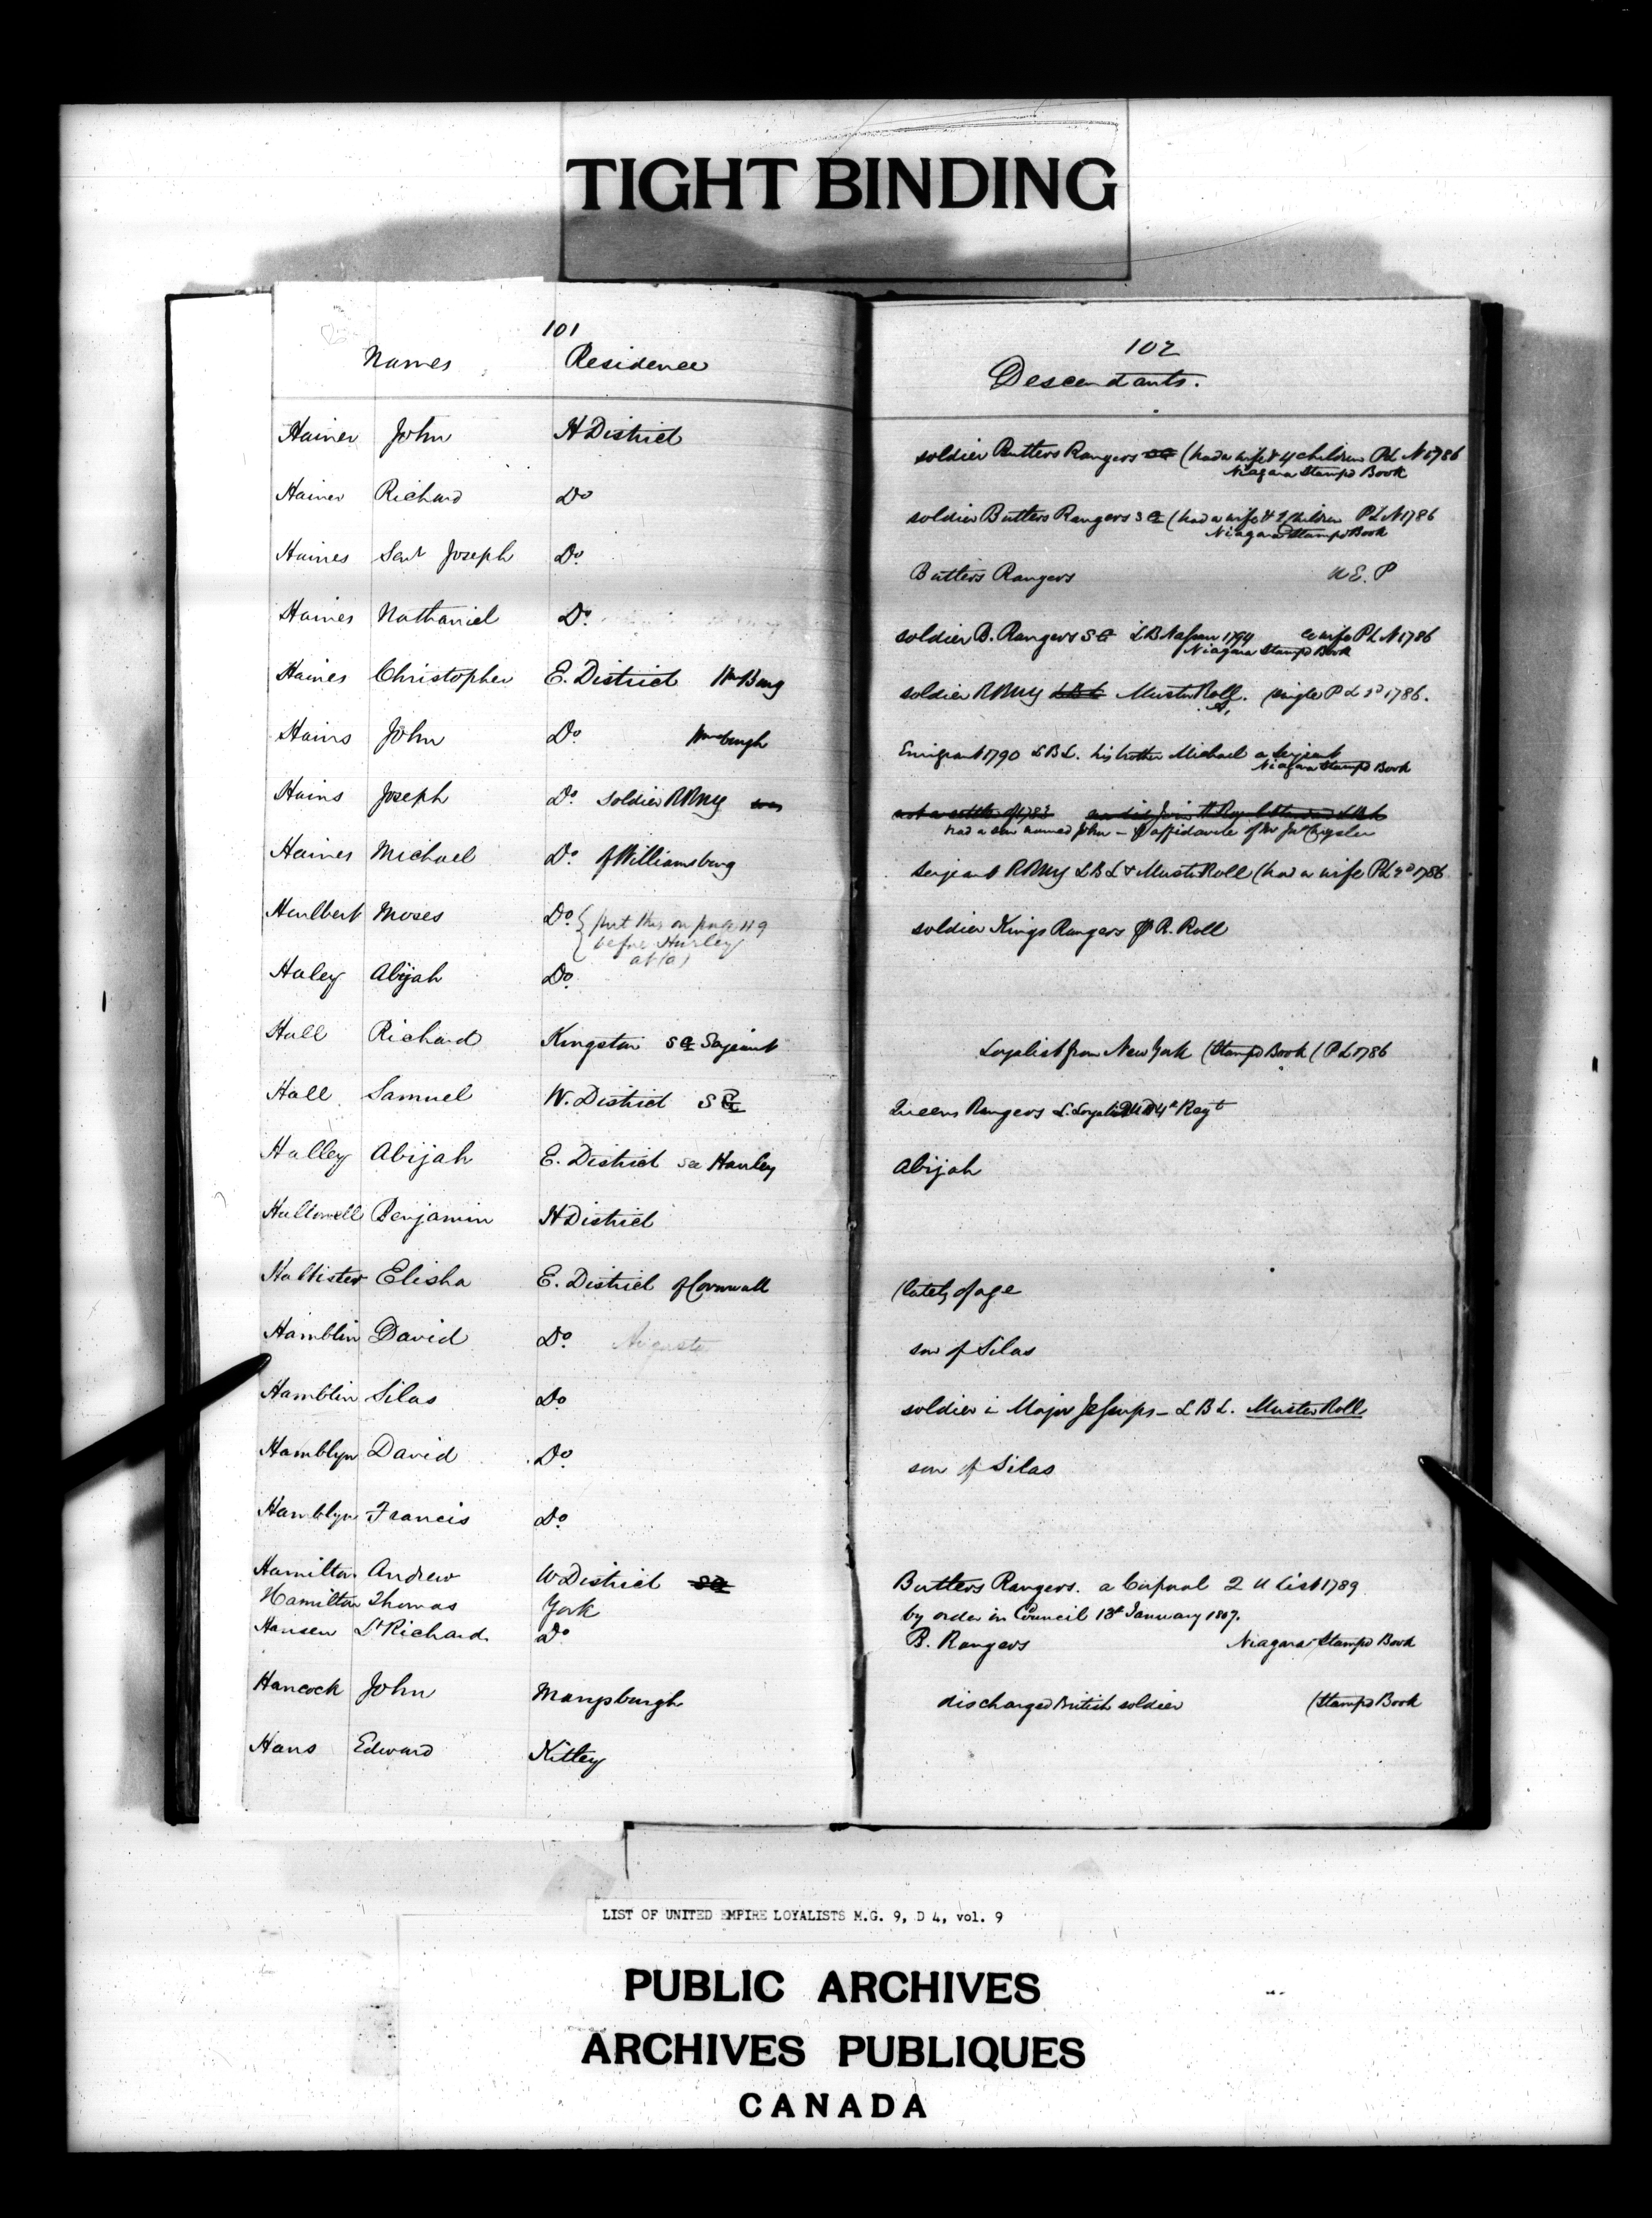 TIGHT BINDING
101
Names Residence
Hainer John H District
Hainer Richard Do
Haines Senr Joseph Do.
Haines Nathaniel Do.
Haines Christopher E. District Wm Burg
Hains John Do. Wmsburgh
Hains Joseph Do. Soldier RRNY
Haines Michael Do. of Williamsburg
Haulbert Moses Do. { put this on page 119
before Hurley
at (a)
Haley Abijah Do.
Hall Richard Kingston S G Serjeant
Hall Samuel W. District S G
Halley Abijah E. District see Hawley
Hallowell Benjamin H District
Hallister Elisha E. District of Cornwall
Hamblin David Do. Augusta
Hamblin Silas Do
Hamblyn David Do.
Hamblyn Francis Do.
Hamilton Andrew W District SG
Hamilton Thomas York
Hansen Lt Richard Do
Hancock John Marysburgh
Hans Edward Kitley
102
Descendants.
soldier Butlers Rangers SG (had a wife & 4 children P L N 1786
Niagara Stamped Book
soldier Butlers Rangers S G (had a wife & 2 children P L N 1786
Niagara Stamped Book
Butlers Rangers U E. P
soldier B. Rangers S G L B Nassau 1794 a wife P L N 1786
Niagara Stamped Book
soldier RRNY L B L Muster Roll. (single P L 2d 1786.
Emigrant 1790 L B L. his brother Michael a serjeant
Niagara Stamped Book
not a settler of 1783
had a son named John - affidavite of Mr Jno Crysler
serjeant RRNY L B L & Muster Roll (had a wife P L 2d 1786
soldier Kings Rangers P R. Roll
Loyalist from New York (Stamped Book (P L 1786
Queens Rangers L. Loyalist Regt
Abijah
(lately of age
son of Silas
soldier in Major Jessups - L B L. Muster Roll
son of Silas
Butlers Rangers. a Corporal 2 U List 1789
by order in Council 13t January 1807.
B. Rangers Niagara Stamped Book
discharged British soldier (Stamped Book
LIST OF UNITED EMPIRE LOYALISTS M.G. 9, D 4, vol. 9
PUBLIC ARCHIVES
ARCHIVES PUBLIQUES
CANADA